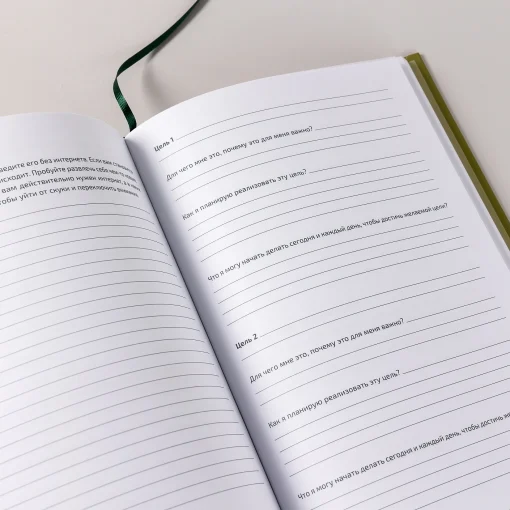 ведите его без интернета. Если вам
исходит. Пробуйте развлечь себя чем-то
вам действительно нужен интернет, а
тобы уйти от скуки и переключить внимание.
Цель 1
Для чего мне это, почему это для меня важно?
Как я планирую реализовать эту цель?
Что я могу начать делать сегодня и каждый день, чтобы достичь желаемой цели?
Цель 2
Для чего мне это, почему это для меня важно?
Как я планирую реализовать эту цель?
Что я могу начать делать сегодня и каждый день, чтобы достичь